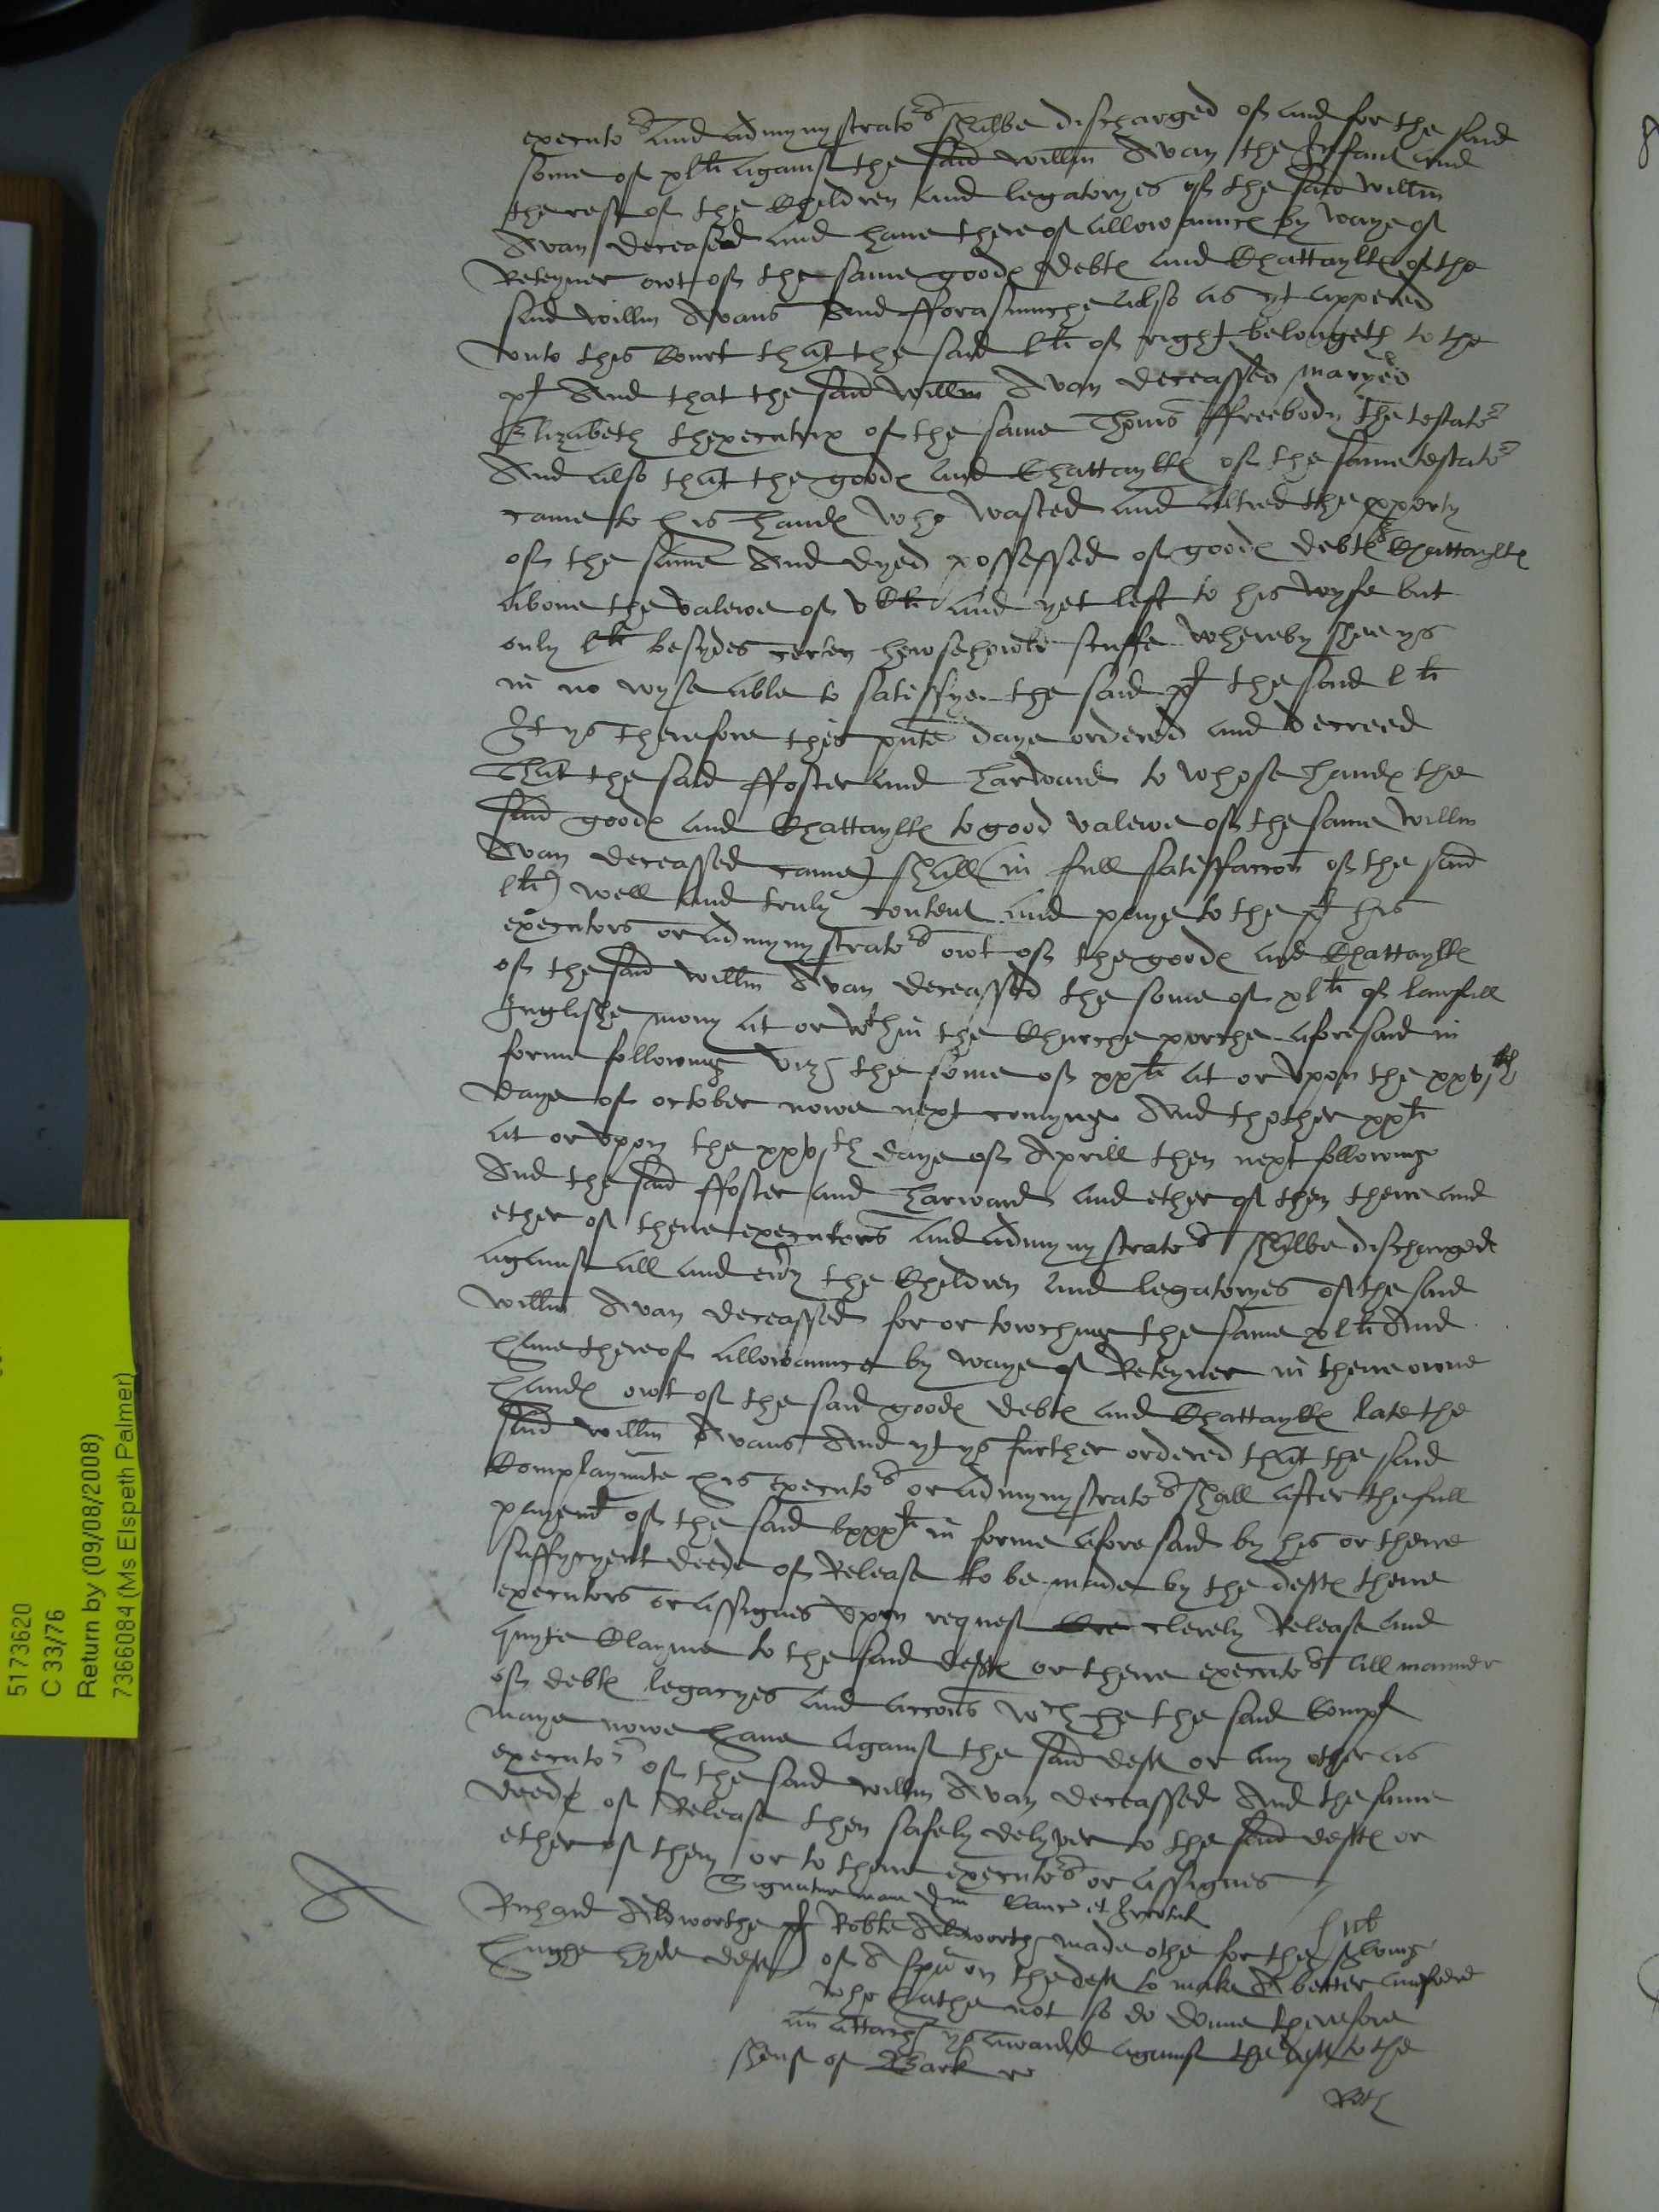 executors and admynystrators shalbe discharged of and for the said
some of xlli against the said Willm Avan the Infant and
the rest of the Children and legatoryes of the said Willm
Avan deceased and have thereof allowaunce by waye of
Reteyner owt of the same goodes debtes and Chattaylles of the
said Willm Avans And fforasmuche also as yt appered
unto this Court that the said lli of right belongeth to the
pl And that the said Willm Avan deceassed maryed
Elizabeth thexecutrix of the same Thoms ffreebody the testator
And also that the goodes and Chattaylles of the same testator
came to his handes who wasted and altred the pperty
of the same And dyed possessed of goodes debtes & Chattaylles
above the valewe of vCli and yet left to his wyfe but
only lli besydes certen howsehowld stuffe whereby shee ys
in no wyse able to satisfye the said pl the said lli
It ys therefore this pnte daye ordered and decreed
That the said ffoster and Harward to whose handes the
said goodes and Chattaylles to good valewe of the same Willm
Avan deceassed came) shall (in full satisfaccon of the said
lli) well and truly content and paye to the pl his
executors or admynystrators owt of the goodes and Chattaylles
of the said Willm Avan deceassed the some of xlli of lawfull
Inglishe mony at or wthin the Churche porche aforesaid in
forme followinge vizt the some of xxli at or upon the xxvjth
daye of october nowe next comynge And thother xxli
at or upon the xxvjth daye of Aprill then next followinge
And the said ffoster and Harward and ether of them theire and
ether of theire executors and admynystrators shalbe discharged
against all and evry the Children and legatoryes of the said
Willm Avan deceassed for or towching the same xlli And
have thereof allowaunce by waye of Reteyner in theire owne
handes owt of the said goodes debtes and Chattaylles late the
said Willm Avans And yt ys further ordered that the said
Complaynnte his executors or admynystrators shall after the full
payemt of the said lxxxli in forme aforesaid by his or theire
suffycyent deede of Release to be made by the deftes theire
executors or assignes upon request Cre clerely Release and
quyte Clayme to the said deftes or theire executors all manner
of debtes legacyes and accons wch he the said Compl
maye nowe have against the said deftes or any other as
executors of the said Willm Avan deceassed And the same
deedes of Release then safely delyver to the said deftes or
ether of them or to theire executors or assignes
Richard Aldworthe pl Robte Aldworth made othe for the
Hughe Hyde deft of A spa on the deft to make A better answere
who hathe not so do donne therefore
an attachmt ys awarded against the deft to the
shrif of Bark